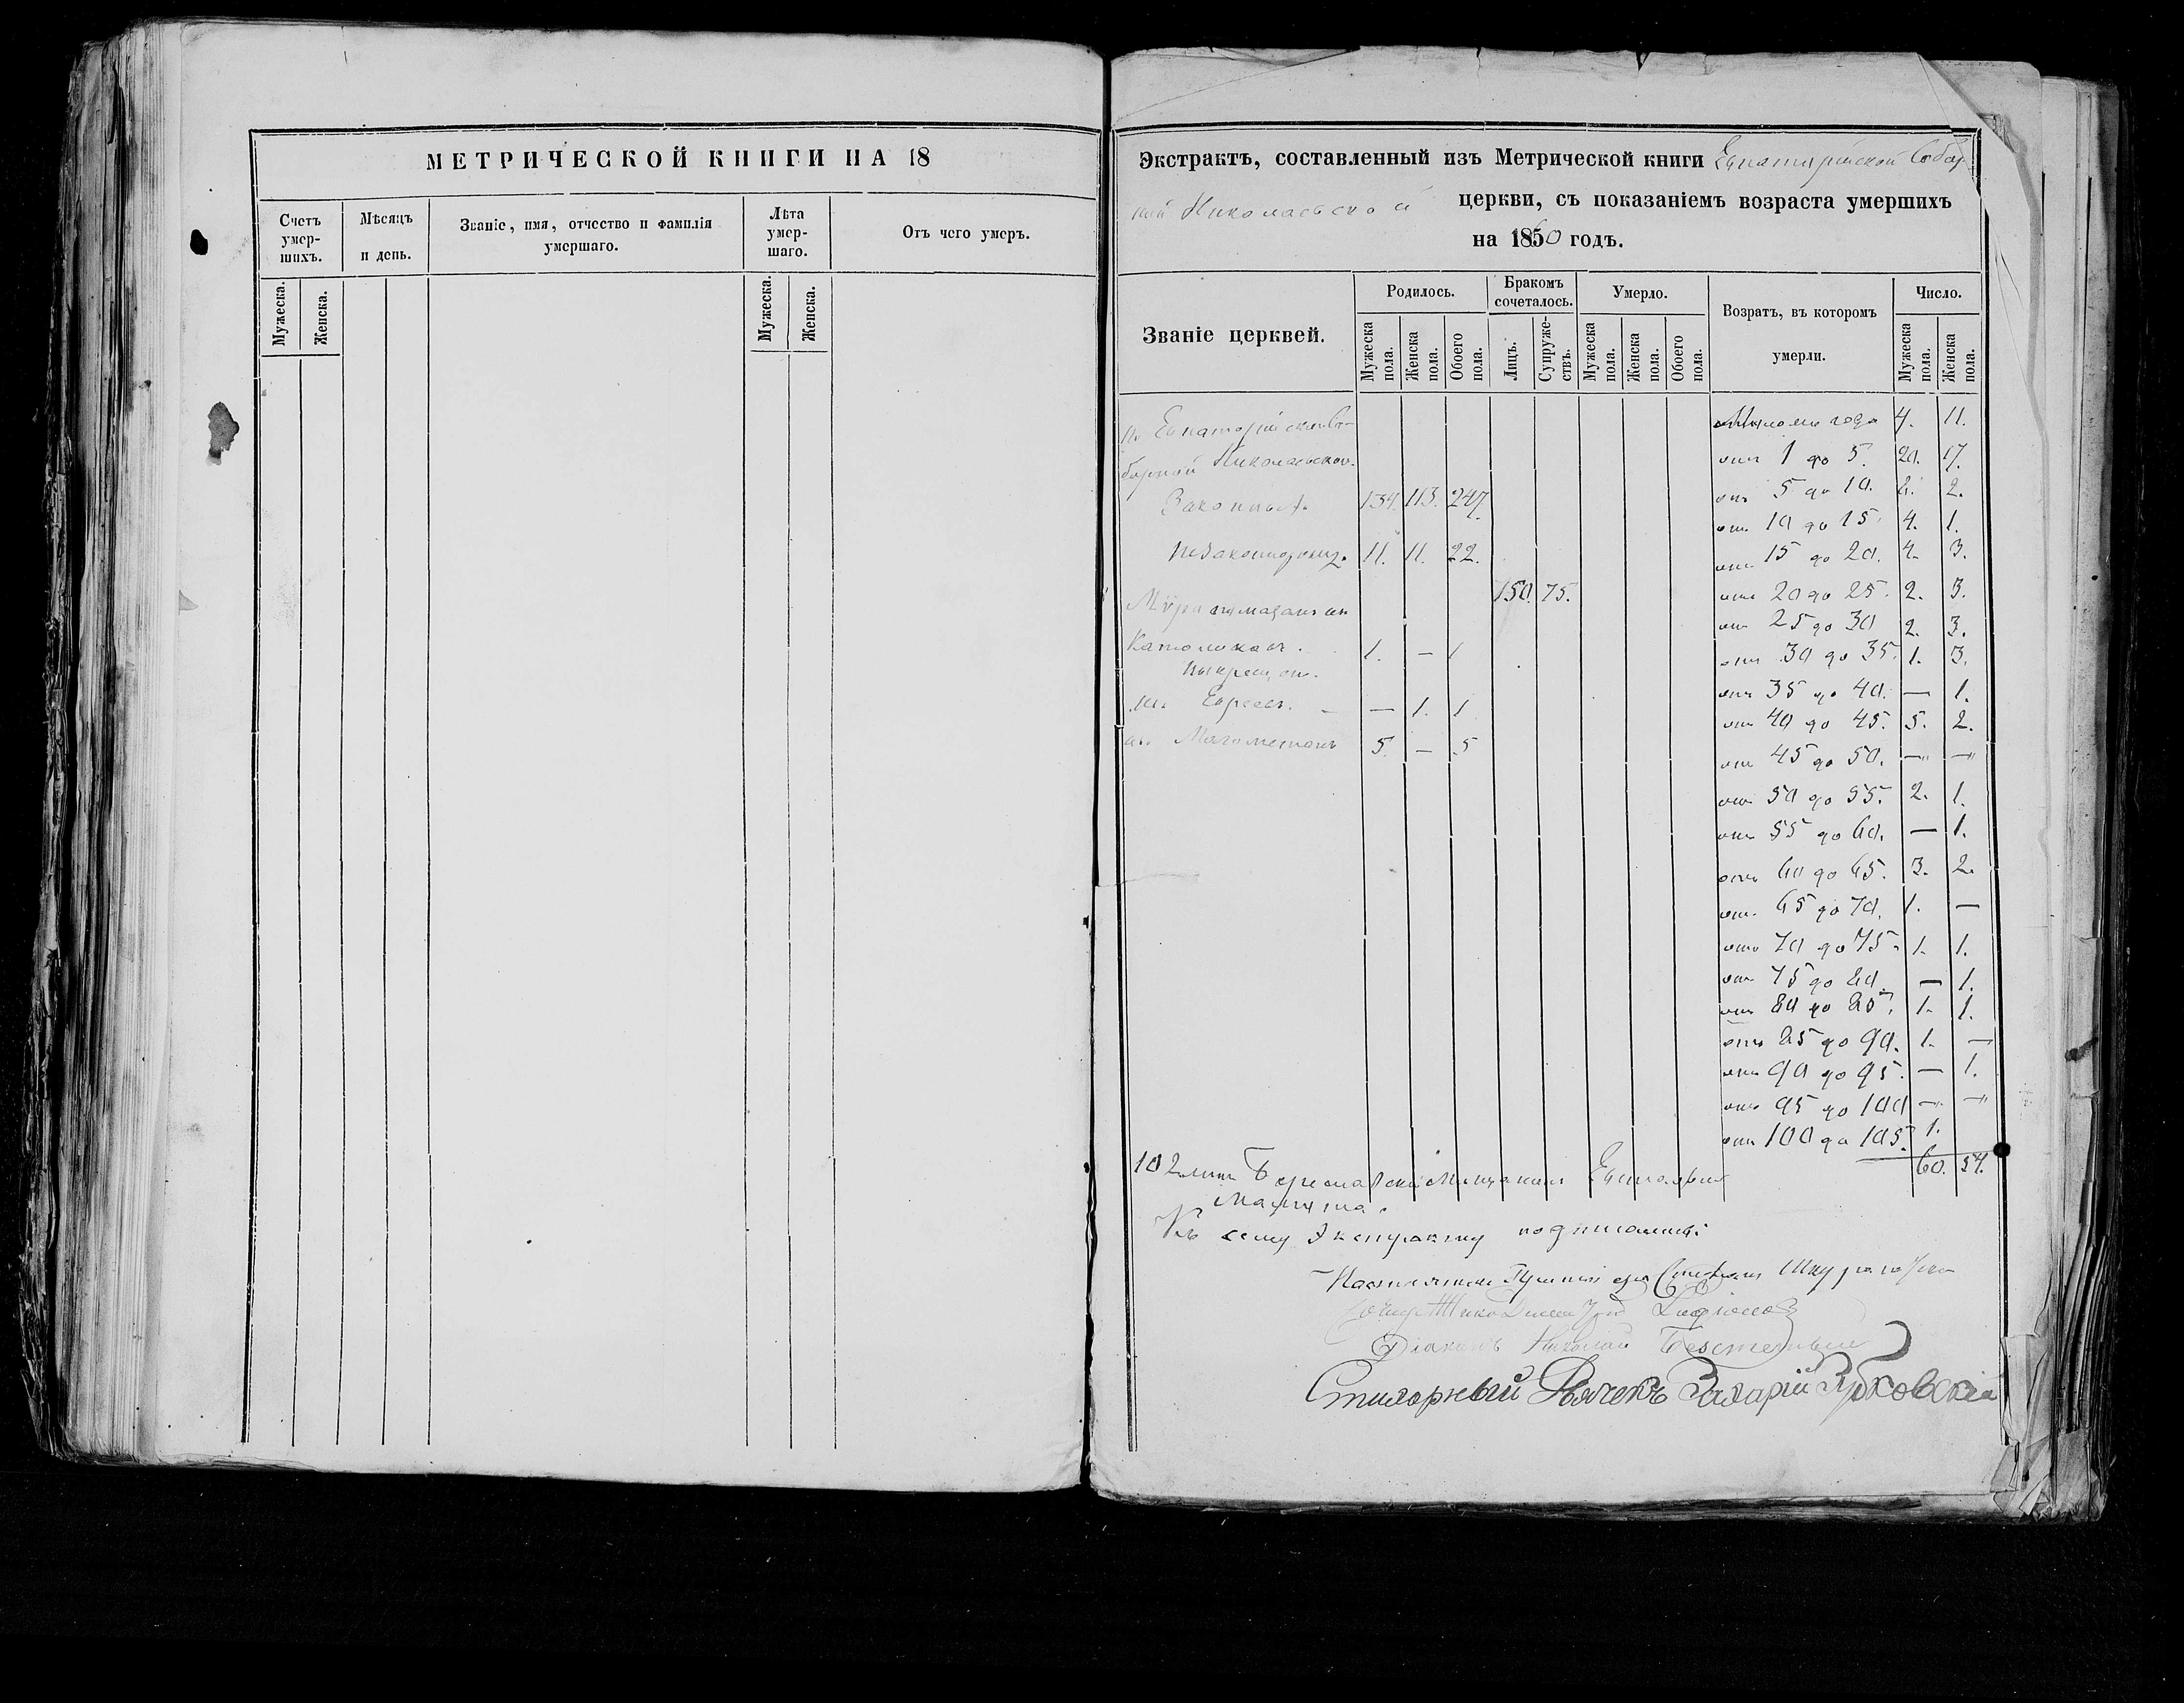 МЕТРИЧЕСКОЙ КНИГИ НА 18
Счетъ умер-шихъ.
Мѣсяцъ и день.
Званіе, имя, отчество и фамилія умершаго.
Лѣта умер-шаго.
Отъ чего умеръ.
Мужеска. Женска. Мужеска. Женска.
Экстрактъ, составленный изъ Метрической книги Евпаторійской Собор
ной Николаевской церкви, съ показаніемъ возраста умершихъ
на 1860 годъ.
Званіе церквей.
Родилось.
Бракомъ сочеталось.
Умерло.
Возратъ, въ которомъ умерли.
Число.
Мужеска пола. Женска пола. Обоего пола. Лицъ. Супруже-ствъ. Мужеска пола. Женска пола. Обоего пола. Мужеска пола. Женска пола.
Евпаторійской Со-
борной Николаевской
Законныхъ 134. 113. 247.
Незаконнорожд. 11. 11. 22.
150. 75.
Мѵропомазанъ
Католикъ. 1. — 1
Евреевъ. — — 1. 1
Магометанъ 5. — 5
года 4. 11.
отъ 1 до 5. 20. 17.
отъ 5 до 10. 8. 2.
отъ 10 до 15. 4. 1.
отъ 15 до 20. 4. 3.
отъ 20 до 25. 2. 3.
отъ 25 до 30 2. 3.
отъ 30 до 35. 1. 3.
отъ 35 до 40. — 1.
отъ 40 до 45. 5. 2.
отъ 45 до 50. —" —"
отъ 50 до 55. 2. 1.
отъ 55 до 60. — 1.
отъ 60 до 65. 3. 2.
отъ 65 до 70. 1. —
отъ 70 до 75. 1. 1.
отъ 75 до 80. — 1.
отъ 80 до 85. 1. 1.
отъ 85 до 90. 1. —
отъ 90 до 95. — 1.
отъ 95 до 100 —" —"
отъ 100 до 105. 1.
60. 54.
102
Къ сему Экстракту подписались:
Діаконъ Николай
Стихарный Дьячекъ Захарій Зубковскій